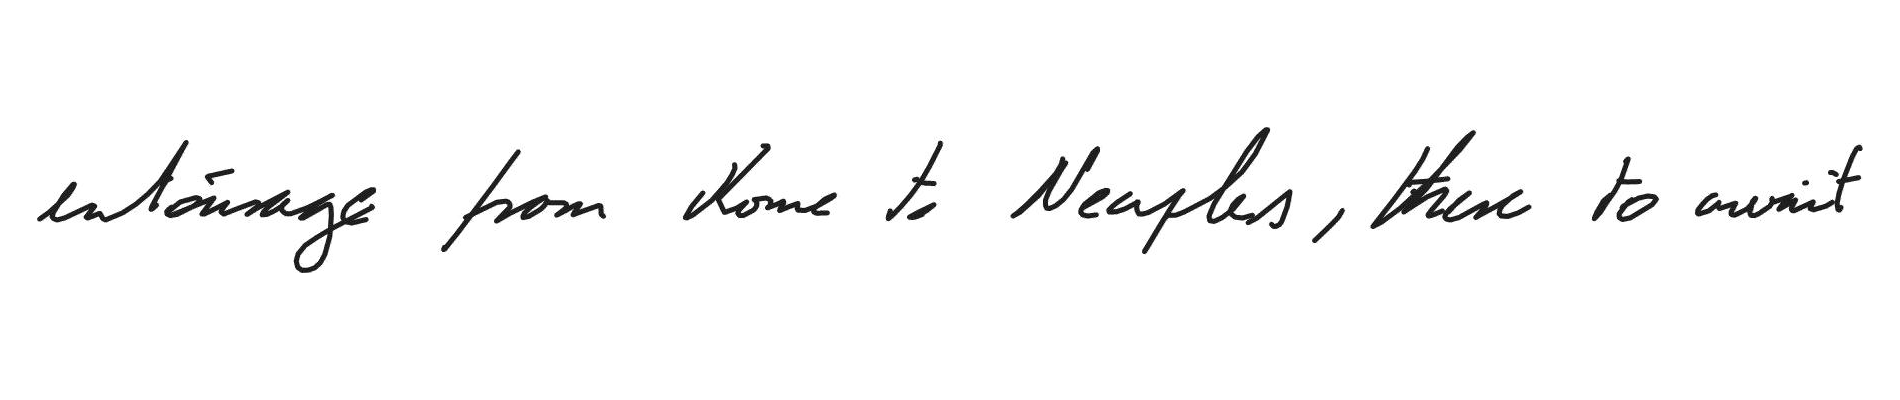 entourage from Rome to Neaples, there to await